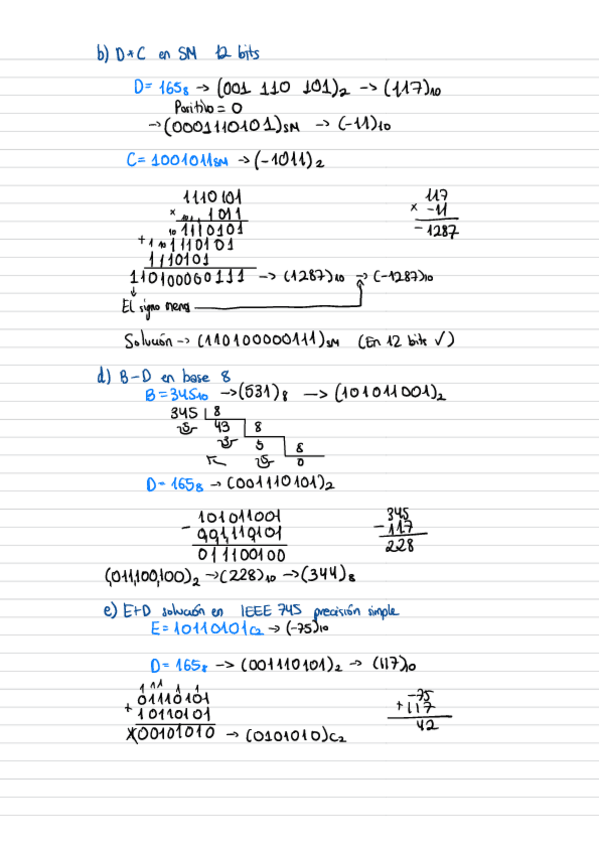 b) D*C en SM 12 bits
D= 165₈ → (001 110 101)₂ → (117)₁₀
Positivo = 0
→ (0001110101)SM → (-11)₁₀
C= 1001011SM → (-1011)₂
1110101 117
× 1011 × -11
1110101 -1287
+ 1110101
1110101
110100000111 → (1287)₁₀ → (-1287)₁₀
El signo
Solución → (110100000111)SM (En 12 bits ✓)
d) B-D en base 8
B= 345₁₀ → (531)₈ → (101011001)₂
345 8
43 8
5 8
0
D= 165₈ → (001110101)₂
101011001 345
- 001110101 -117
011100100 228
(011,100,100)₂ → (228)₁₀ → (344)₈
e) E+D solución en IEEE 745 precisión simple
E= 10110101C2 → (-75)₁₀
D= 165₈ → (001110101)₂ → (117)₁₀
1 11 1 1
01110101 -75
+ 10110101 +117
X00101010 → (0101010)C2 42